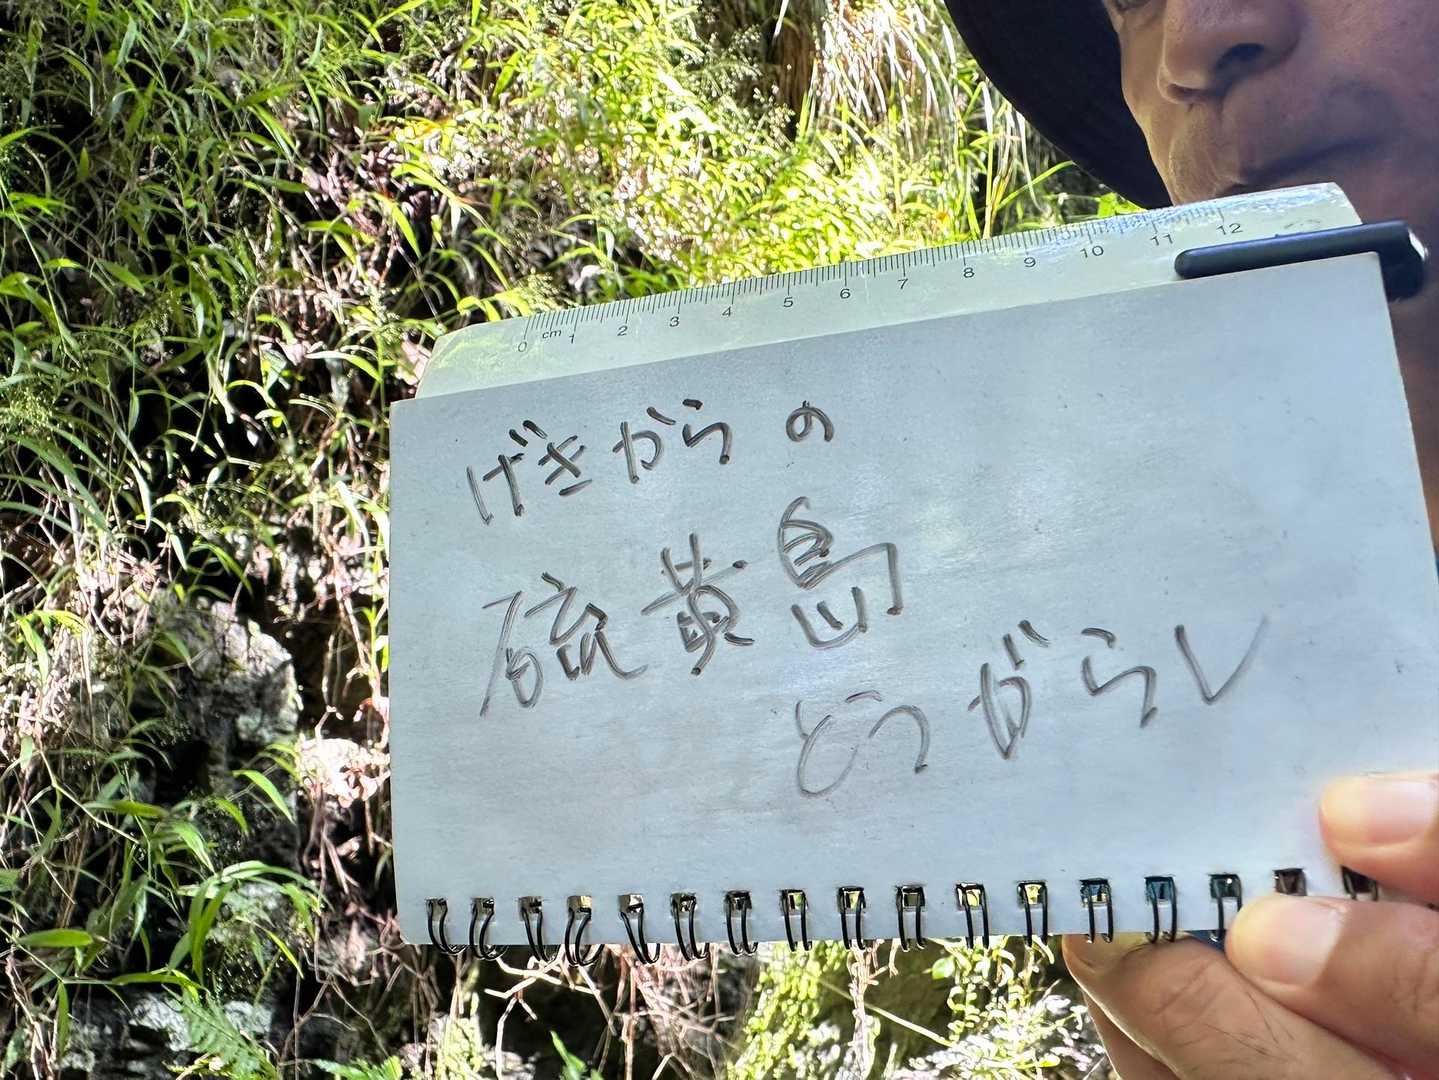 0 cm 1 2 3 4 5 6 7 8 9 10 11 12
げきからの
硫黄島
とうがらし